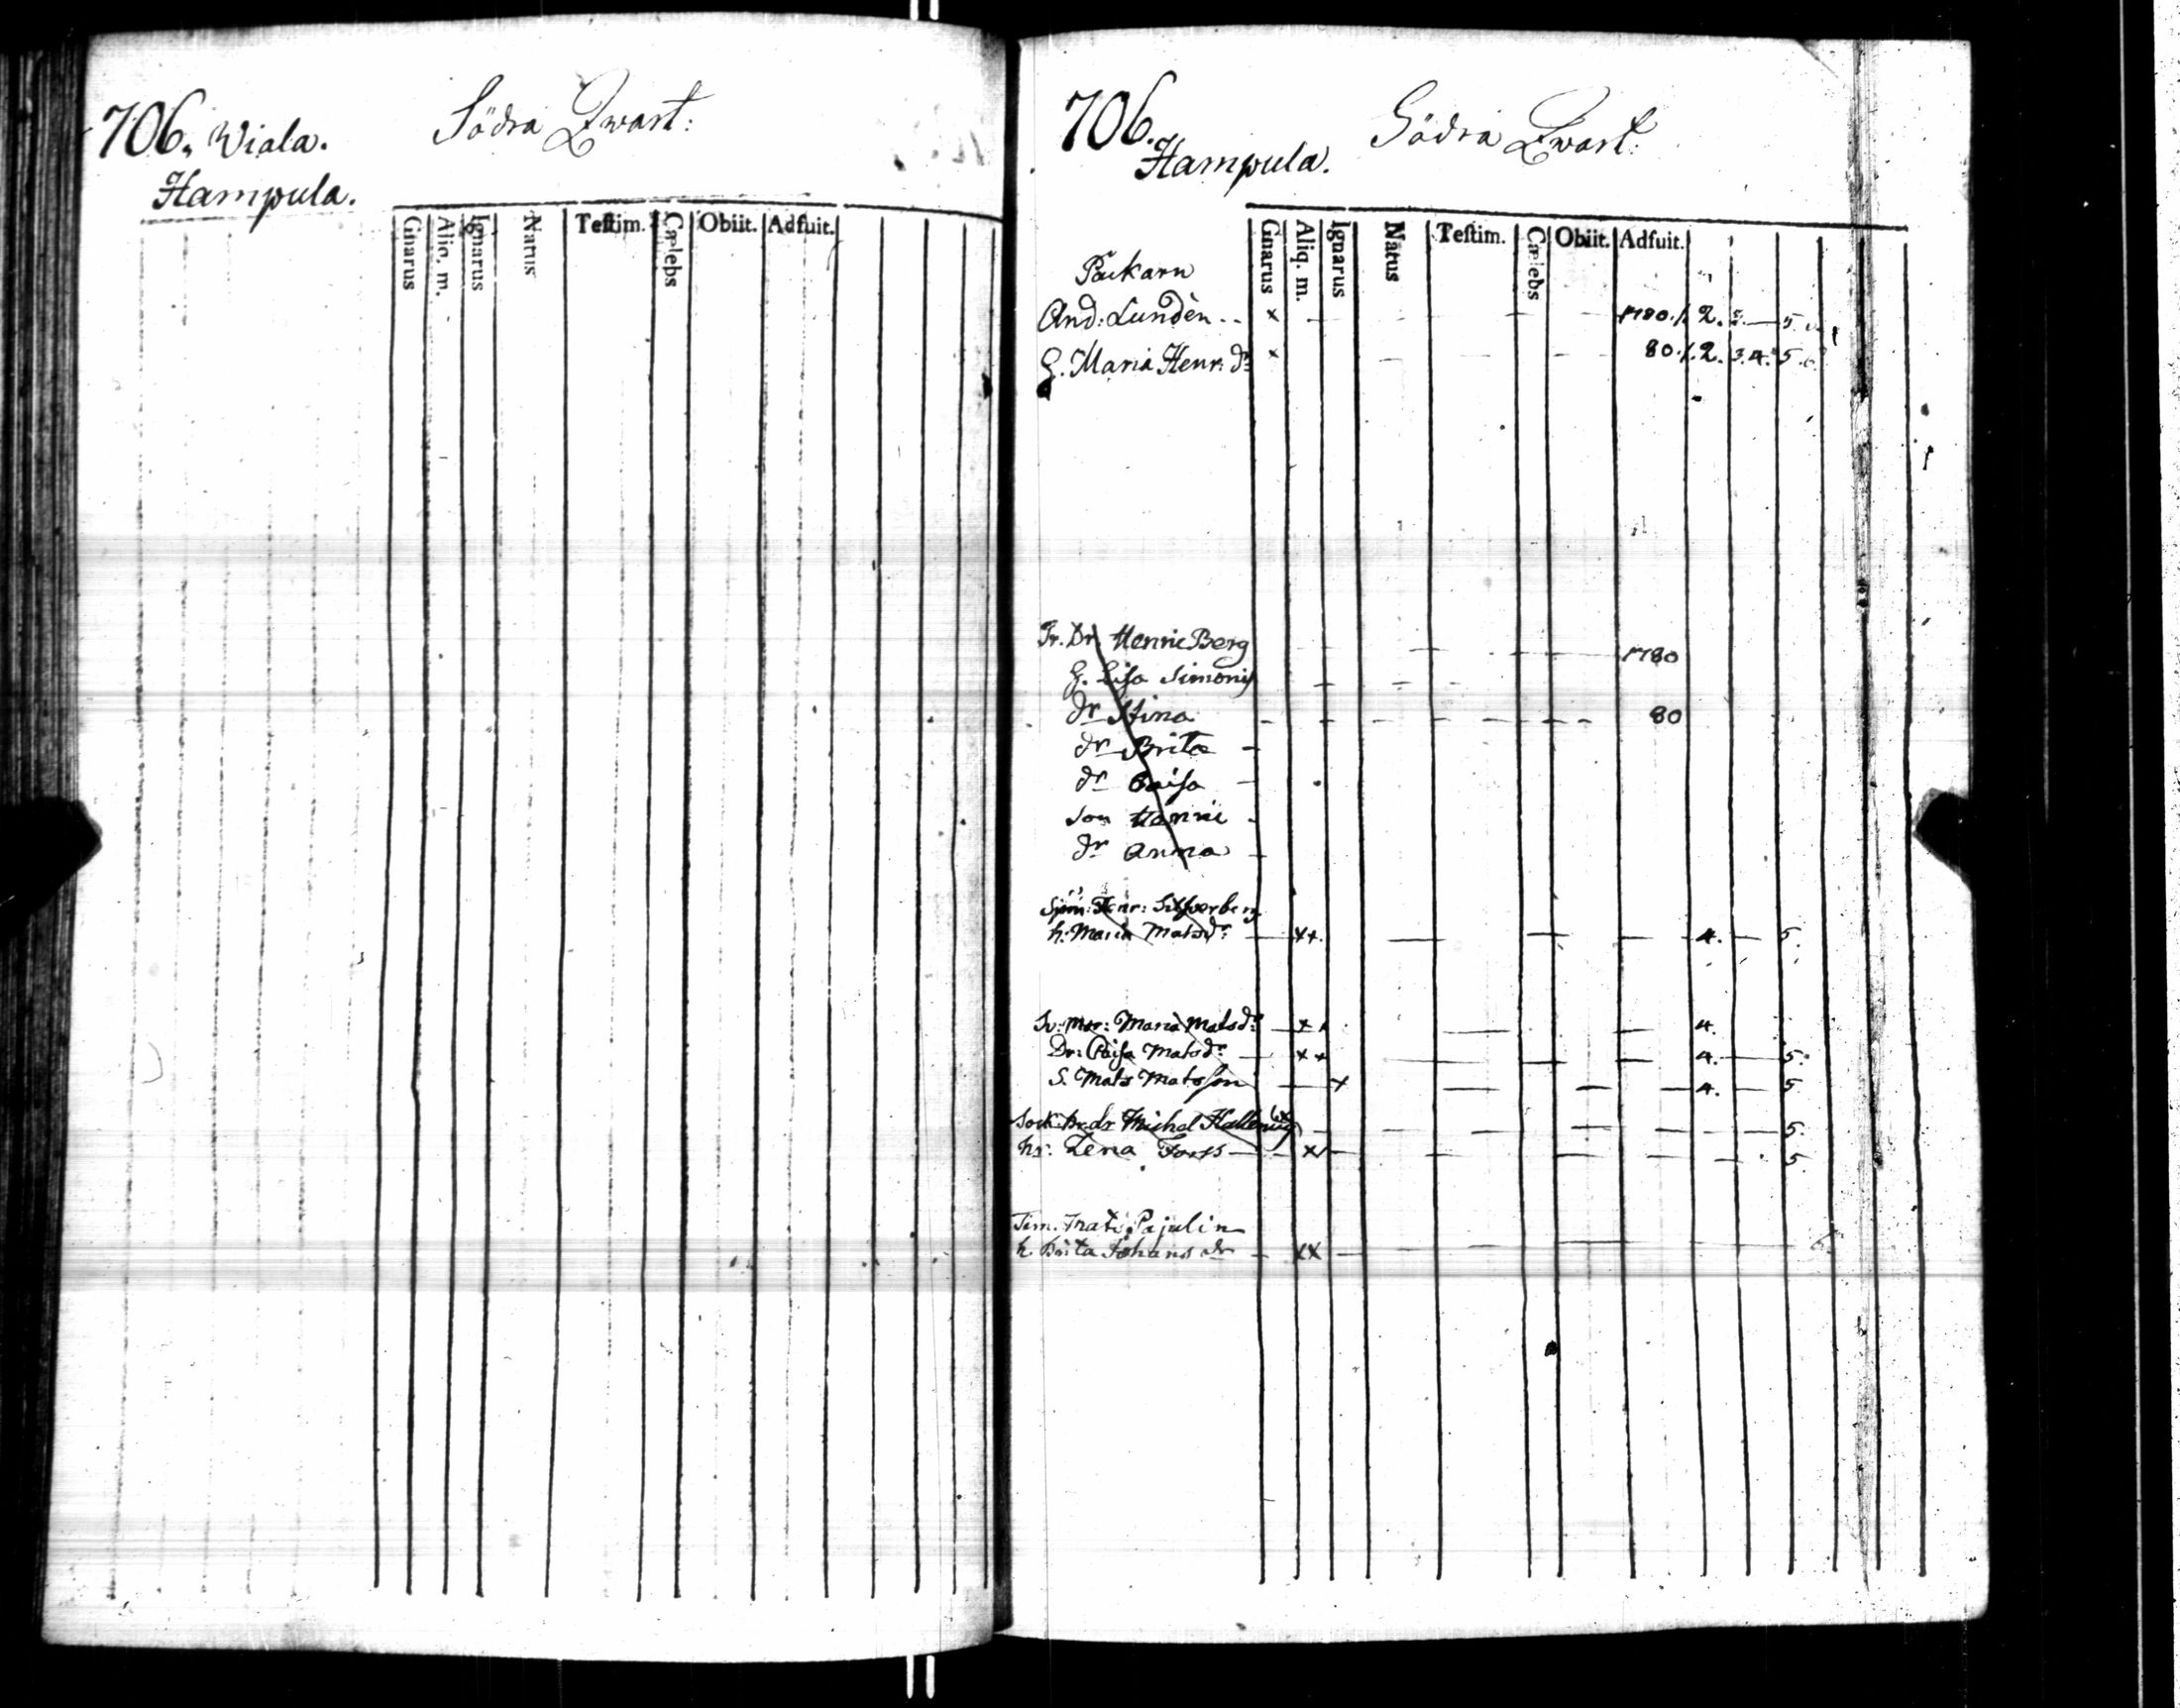 706. Wiala.
Södra Qwart:
Hampula.
Gnarus Aliq. m. Ignarus Natus Testim. Cælebs Obiit. Adfuit.
706.
Södra Qwart:
Hampula.
Gnarus Aliq. m. Ignarus Natus Testim. Cælebs Obiit. Adfuit.
Packarn
And: Lundèn - - x 1780. 1. 2. 5.
H. Maria Henr: dr x 80. 1. 2. 3. 4. 5. 6
Tr. Dr. Henric Berg 1780
H. Lisa Simonis
dr Stina 80
dr Brita
dr Caisa
son Henric
dr Anna
Sjöm: Henr: Silfverberg
h: Maria Matsdr xx 4. 5.
Maria Matsdr 4.
Dr: Caisa Matsdr xx 4. 5.
S. Mats Matsson x 4. 5
Michel
hr: Lena Forss xx 5
Tim. Mats Pajulin
h. Brita Johans dr xx 6.